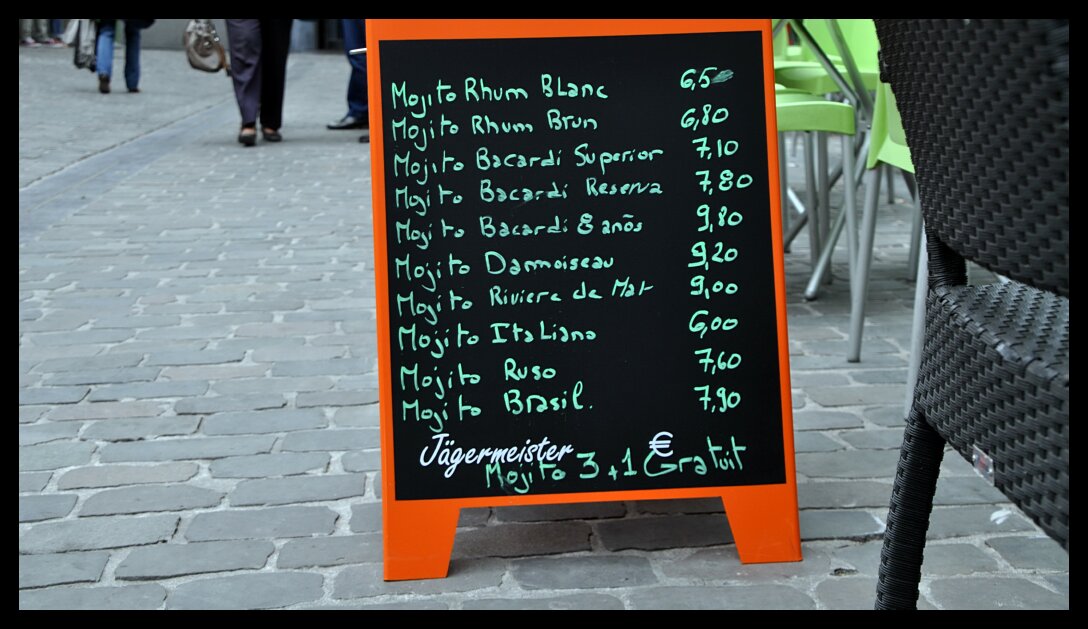 Mojito Rhum Blanc 6,5
Mojito Rhum Brun 6,80
Mojito Bacardi Superior 7,10
Mojito Bacardi Reserva 7,80
Mojito Bacardi 8 anõs 9,80
Mojito Damoiseau 9,20
Mojito Riviere de Mat 9,00
Mojito Italiano 6,00
Mojito Ruso 7,60
Mojito Brasil. 7,90
Jägermeister €
Mojito 3+1 Gratuit